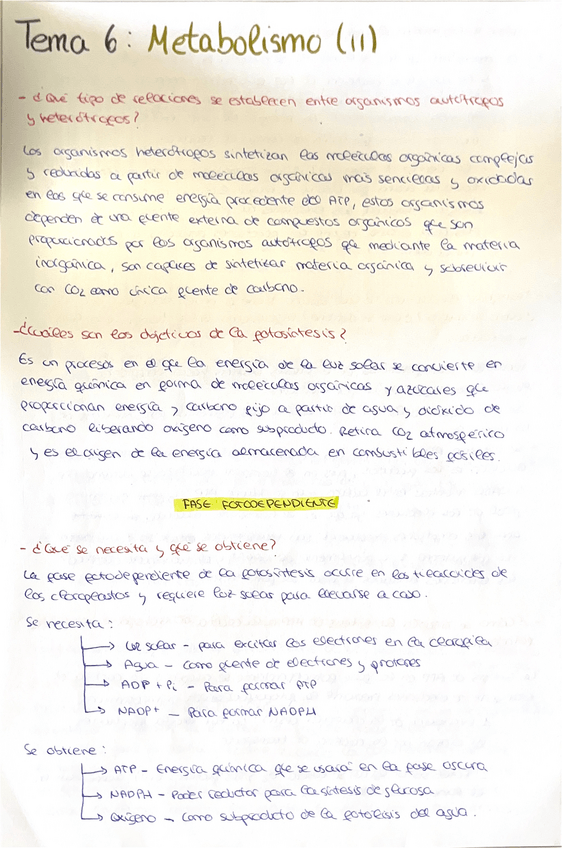 Tema 6: Metabolismo (II)
- ¿Qué tipo de relaciones se establecen entre organismos autótrofos
y heterótrofos?
Los organismos heterótrofos sintetizan las moléculas orgánicas complejas
y reducidas a partir de moléculas orgánicas más sencillas y oxidadas
en las que se consume energía procedente del ATP, estos organismos
dependen de una fuente externa de compuestos orgánicos que son
proporcionados por los organismos autótrofos que mediante la materia
inorgánica, son capaces de sintetizar materia orgánica y sobrevivir
con CO2 como única fuente de carbono.
-¿Cuáles son los objetivos de la fotosíntesis?
Es un procesos en el que la energía de la luz solar se convierte en
energía química en forma de moléculas orgánicas y azúcares que
proporcionan energía y carbono fijo a partir de agua y dióxido de
carbono liberando oxígeno como subproducto. Retira CO2 atmosférico
y es el origen de la energía almacenada en combustibles fósiles.
FASE FOTODEPENDIENTE
- ¿Qué se necesita y qué se obtiene?
La fase fotodependiente de la fotosíntesis ocurre en los tilacoides de
los cloroplastos y requiere luz solar para llevarse a cabo.
Se necesita:
→ Luz solar - para excitar los electrones en la clorofila
→ Agua - como fuente de electrones y protones
→ ADP + Pi - Para formar ATP
→ NADP+ - Para formar NADPH
Se obtiene:
→ ATP - Energía química que se usará en la fase oscura
→ NADPH - Poder reductor para la síntesis de glucosa
→ Oxígeno - como subproducto de la fotólisis del agua.